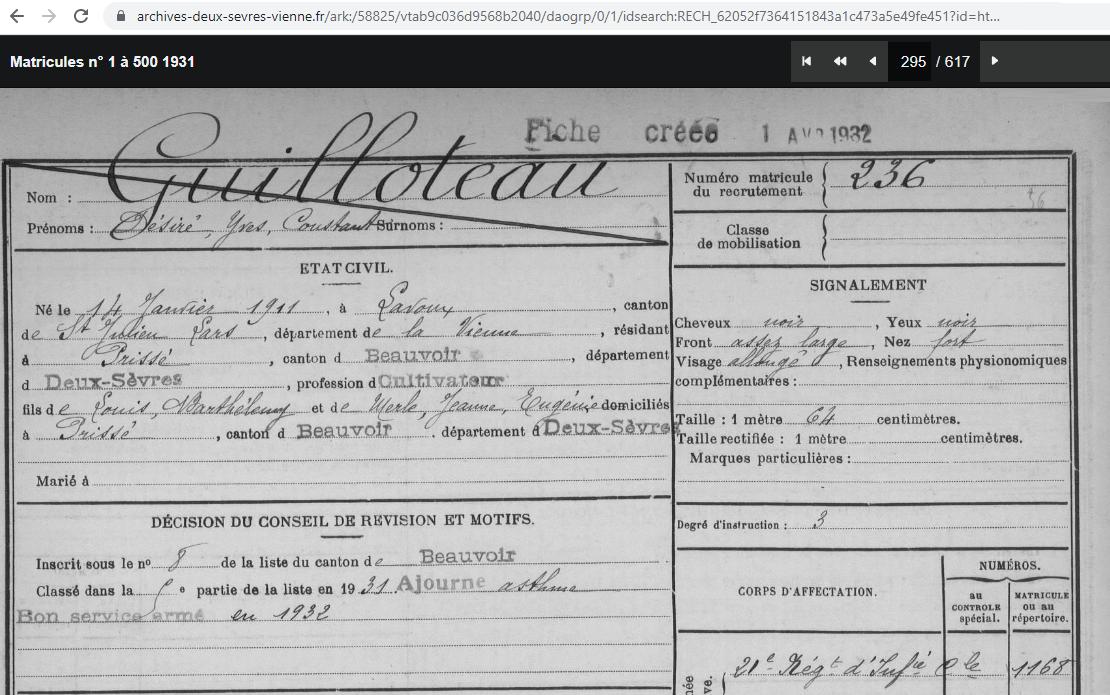 archives-deux-sevres-vienne.fr/ark:/58825/vtab9c036d9568b2040/daogrp/0/1/idsearch:RECH_62052f7364151843a1c473a5e49fe451?id=ht...
Matricules n° 1 à 500 1931
295 / 617
Fiche créée 1 AVR 1932
Nom : Guilloteau
Prénoms : Désiré, Yves, Constant Surnoms :
Numéro matricule du recrutement 236
Classe de mobilisation
ETAT CIVIL.
Né le 14 Janvier 1911, à Lavoux, canton
de St Julien Lars, département de la Vienne, résidant
à Prissé, canton d Beauvoir, département
d Deux-Sèvres, profession d Cultivateur
fils de Louis, Barthélemy et de Merle, Jeanne, Eugénie domiciliés
à Prissé, canton d Beauvoir. département d Deux-Sèvres
Marié à
SIGNALEMENT
Cheveux noir, Yeux noir
Front assez large, Nez fort
Visage allongé, Renseignements physionomiques
complémentaires :
Taille : 1 mètre 64 centimètres.
Taille rectifiée : 1 mètre centimètres.
Marques particulières :
Degré d'instruction : 3
DÉCISION DU CONSEIL DE REVISION ET MOTIFS.
Inscrit sous le no 8 de la liste du canton de Beauvoir
Classé dans la 5e partie de la liste en 1931. Ajourne asthme
Bon service armé en 1932
CORPS D'AFFECTATION.
NUMÉROS.
au CONTROLE spécial.
MATRICULE ou au répertoire.
21e Régt d'Infie 1168